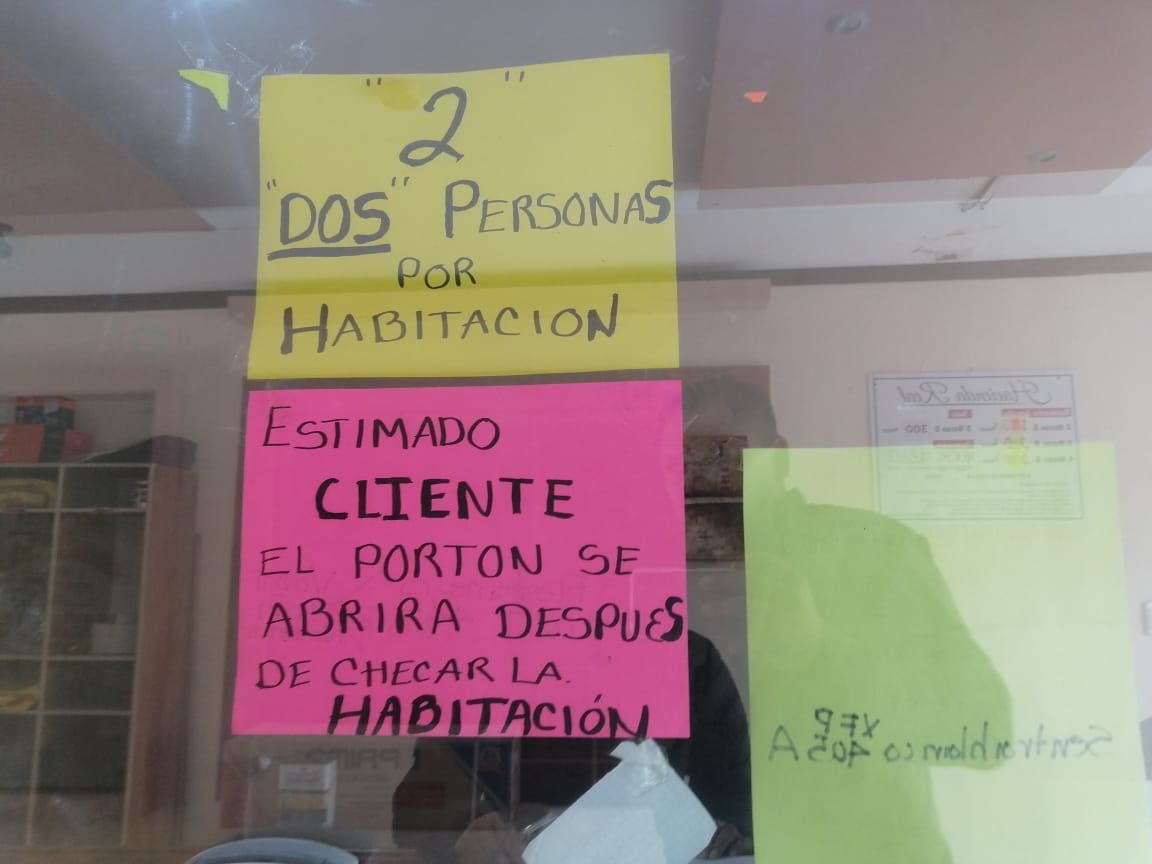 "2"
"DOS" PERSONAS
POR
HABITACION
ESTIMADO
CLIENTE
EL PORTON SE
ABRIRA DESPUES
DE CHECAR LA.
HABITACIÓN
Hacienda Real
300
Sentra blanco
XFP
405 A
PRIMO